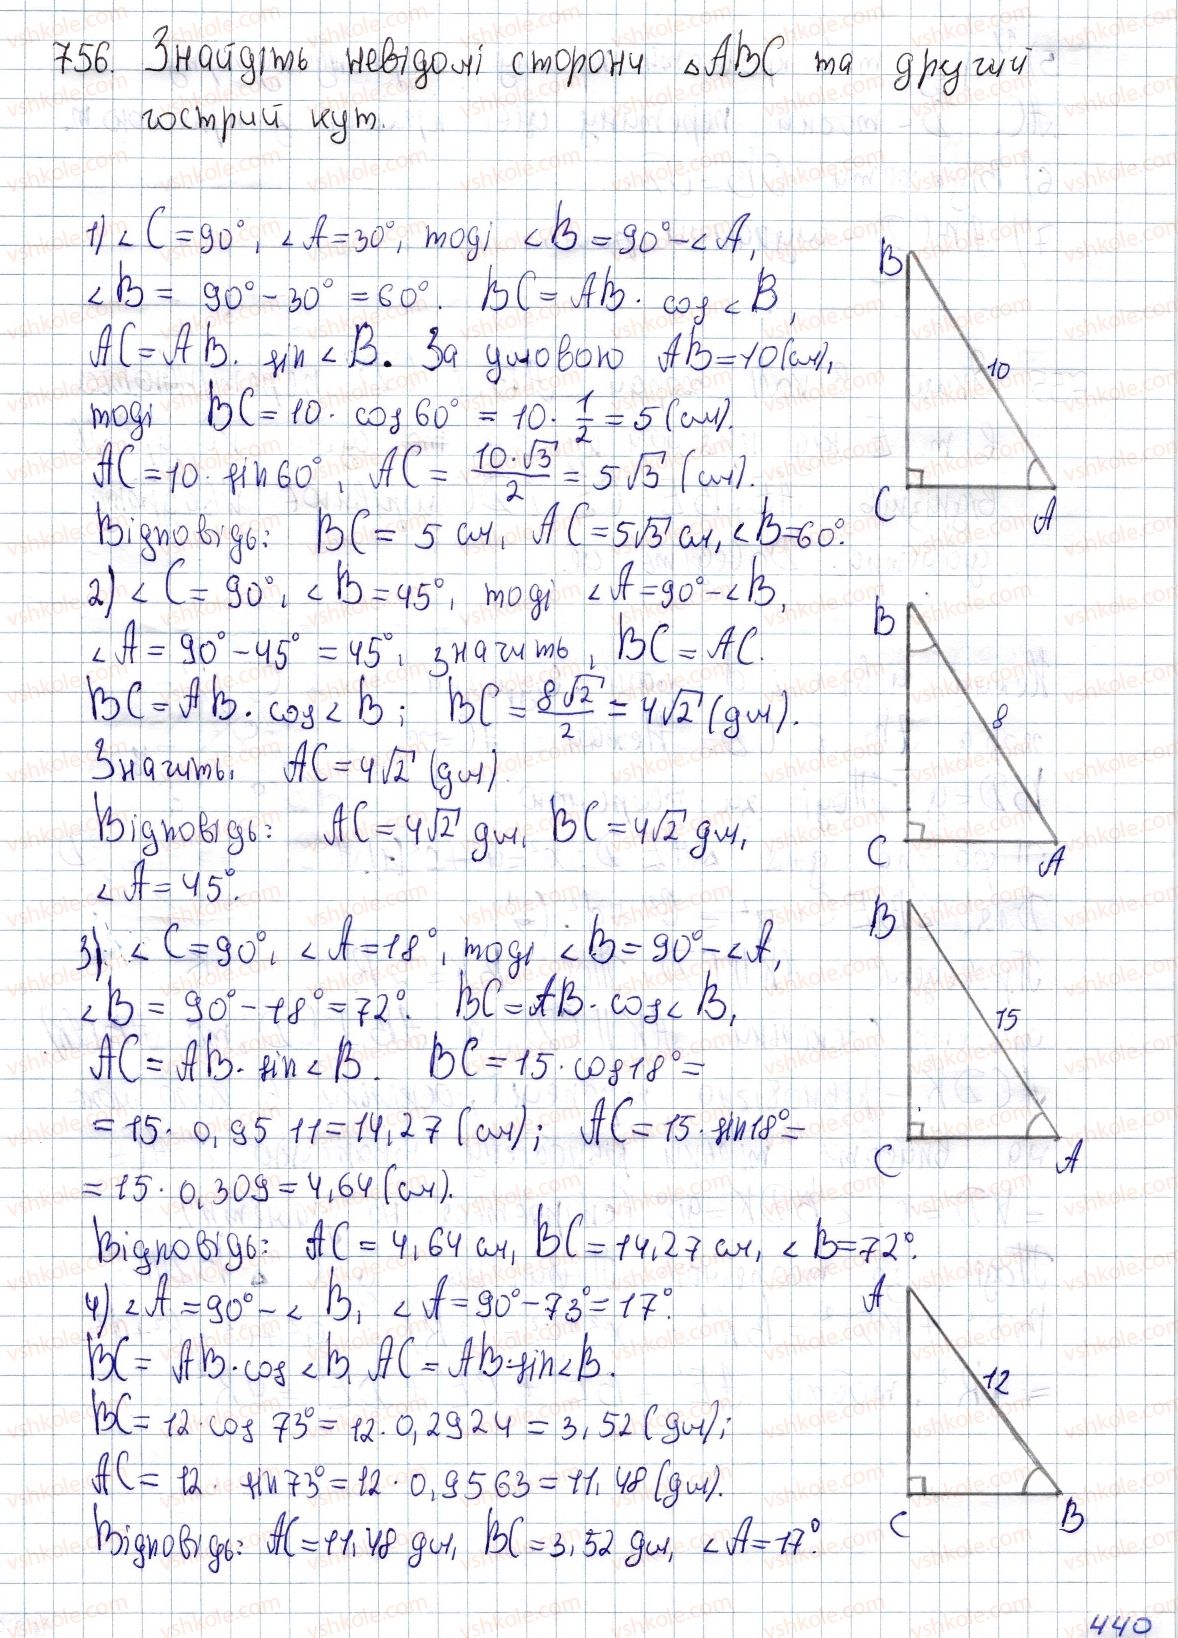 756. Знайдіть невідомі сторони △ABC та другий
гострий кут.
1) ∠C = 90°, ∠A = 30°, тоді ∠B = 90° − ∠A,
∠B = 90° − 30° = 60°. BC = AB · cos ∠B,
AC = AB · sin ∠B. За умовою AB = 10 (см),
тоді BC = 10 · cos 60° = 10 · 1/2 = 5 (см).
AC = 10 · sin 60°, AC = 10·√3/2 = 5√3 (см).
Відповідь: BC = 5 см, AC = 5√3 см, ∠B = 60°.
2) ∠C = 90°, ∠B = 45°, тоді ∠A = 90° − ∠B,
∠A = 90° − 45° = 45°, значить, BC = AC.
BC = AB · cos ∠B; BC = 8√2/2 = 4√2 (дм).
Значить, AC = 4√2 (дм).
Відповідь: AC = 4√2 дм, BC = 4√2 дм,
∠A = 45°.
3) ∠C = 90°, ∠A = 18°, тоді ∠B = 90° − ∠A,
∠B = 90° − 18° = 72°. BC = AB · cos ∠B,
AC = AB · sin ∠B. BC = 15 · cos 18° =
= 15 · 0,9511 = 14,27 (см); AC = 15 · sin 18° =
= 15 · 0,309 = 4,64 (см).
Відповідь: AC = 4,64 см, BC = 14,27 см, ∠B = 72°.
4) ∠A = 90° − ∠B, ∠A = 90° − 73° = 17°.
BC = AB · cos ∠B, AC = AB · sin ∠B.
BC = 12 · cos 73° = 12 · 0,2924 = 3,52 (дм);
AC = 12 · sin 73° = 12 · 0,9563 = 11,48 (дм).
Відповідь: AC = 11,48 дм, BC = 3,52 дм, ∠A = 17°.
B
10
C
A
B
8
C
A
B
15
C
A
A
12
C
B
440
vshkole.com